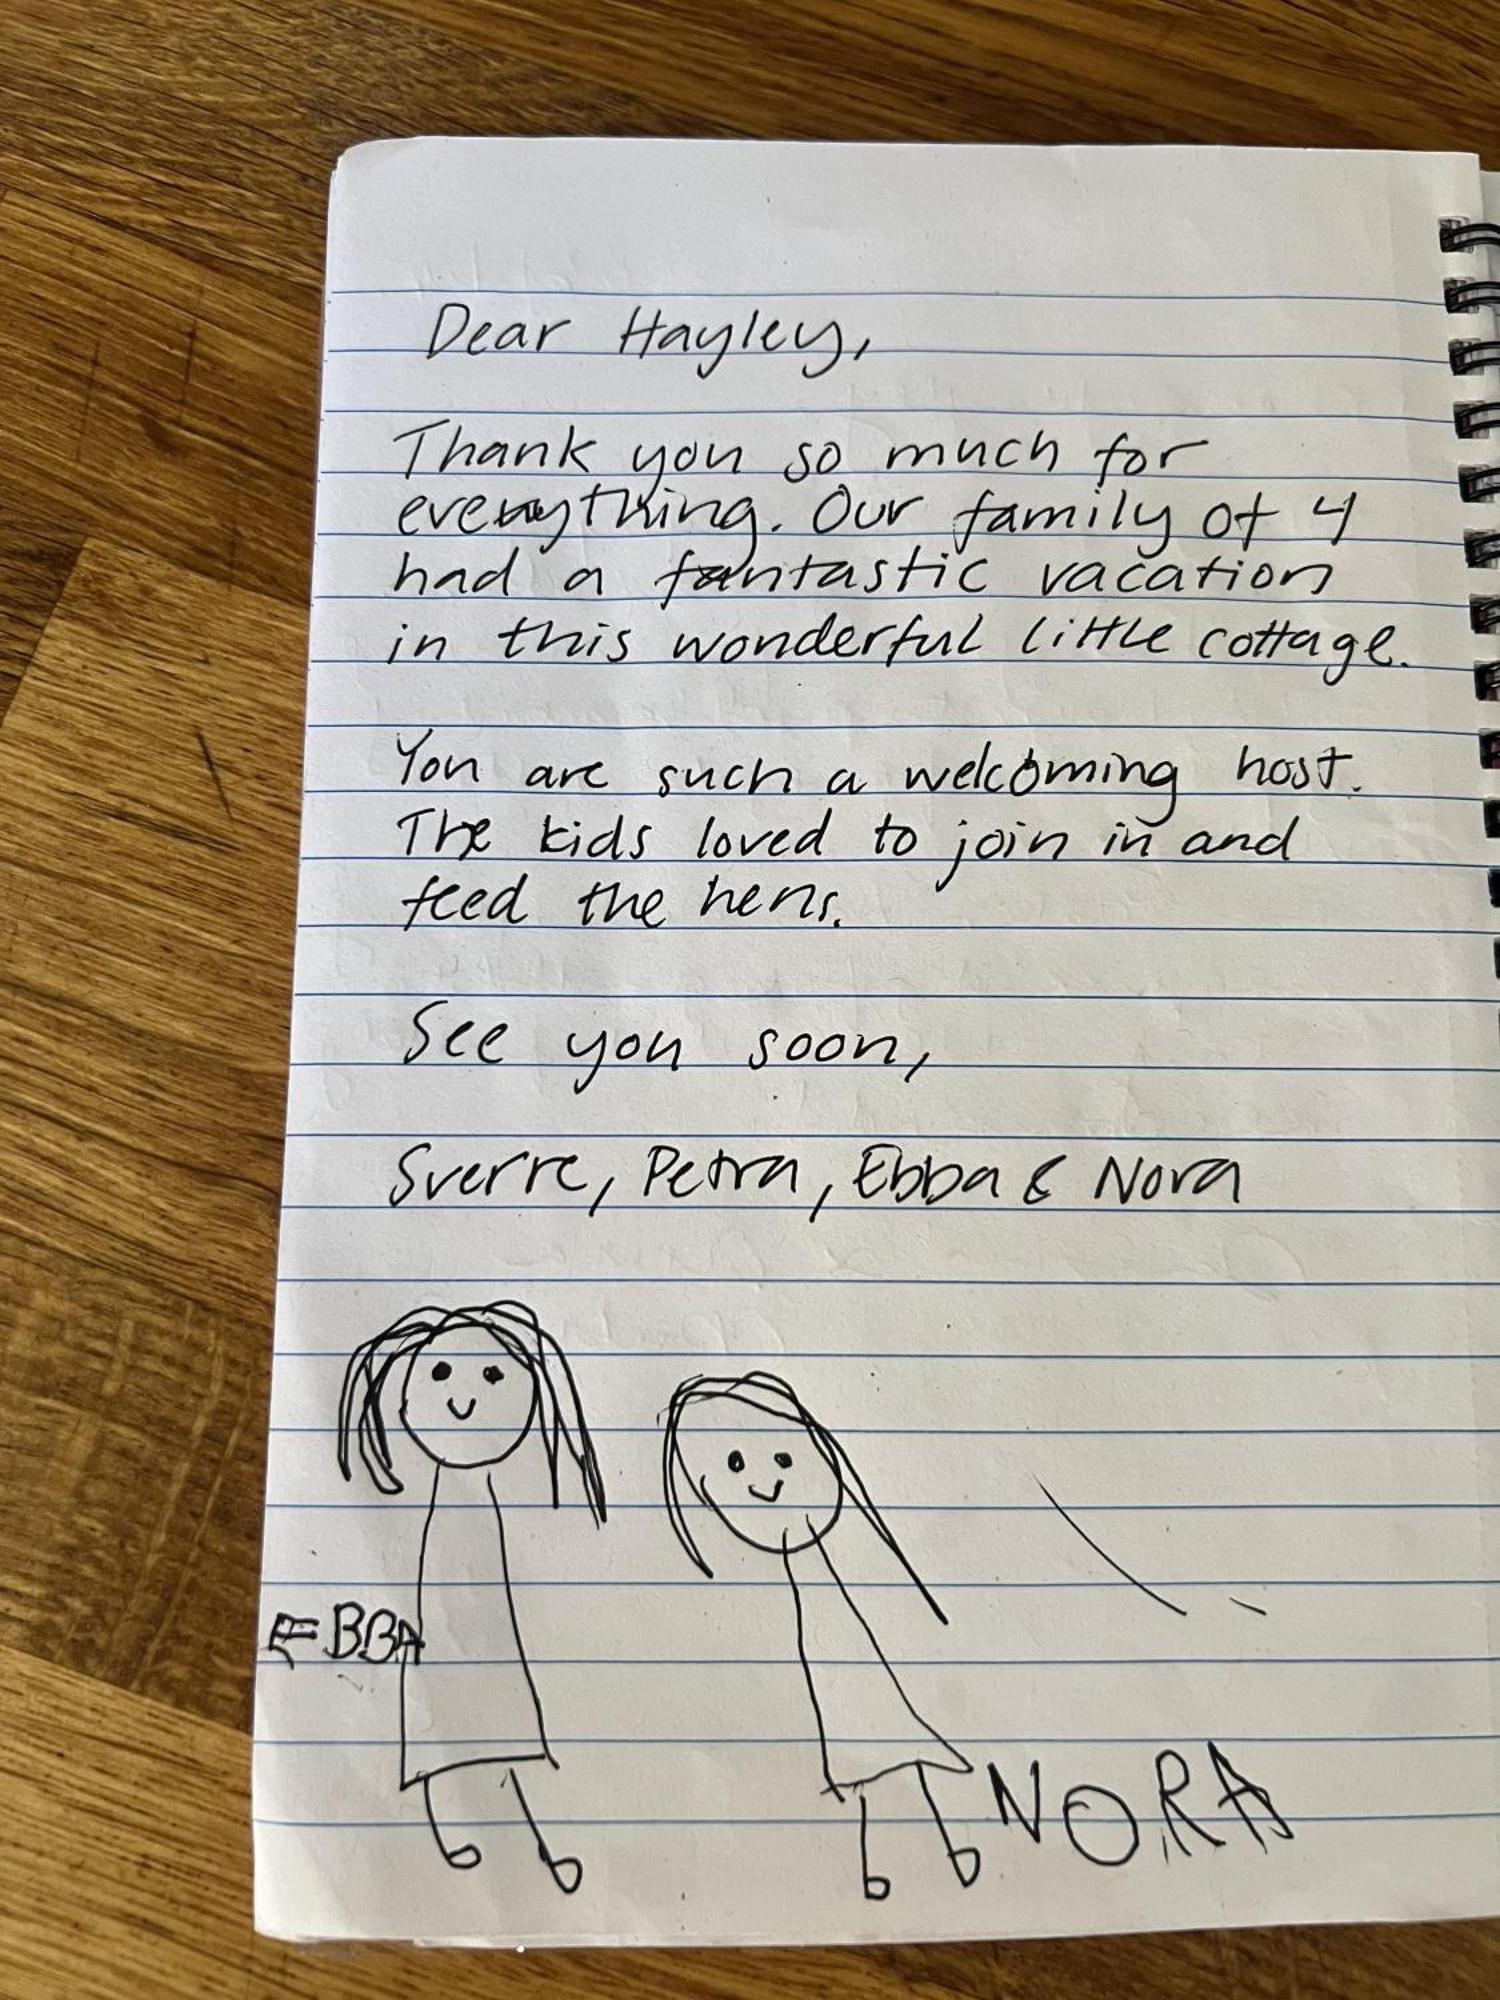 Dear Hayley,
Thank you so much for
everything. Our family of 4
had a fantastic vacation
in this wonderful little cottage.
You are such a welcoming host.
The kids loved to join in and
feed the hens.
See you soon,
Sverre, Petra, Ebba & Nora
EBBA
NORA